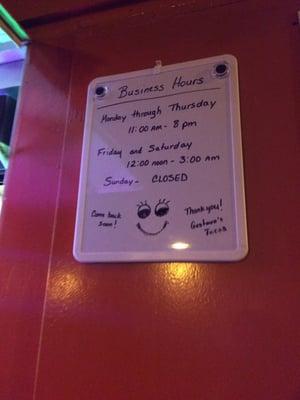 Business Hours
Monday through Thursday
11:00 AM - 8 pm
Friday and Saturday
12:00 noon - 3:00 AM
Sunday - CLOSED
Come back
soon!
Thank you!
Gustavo's
Tacos